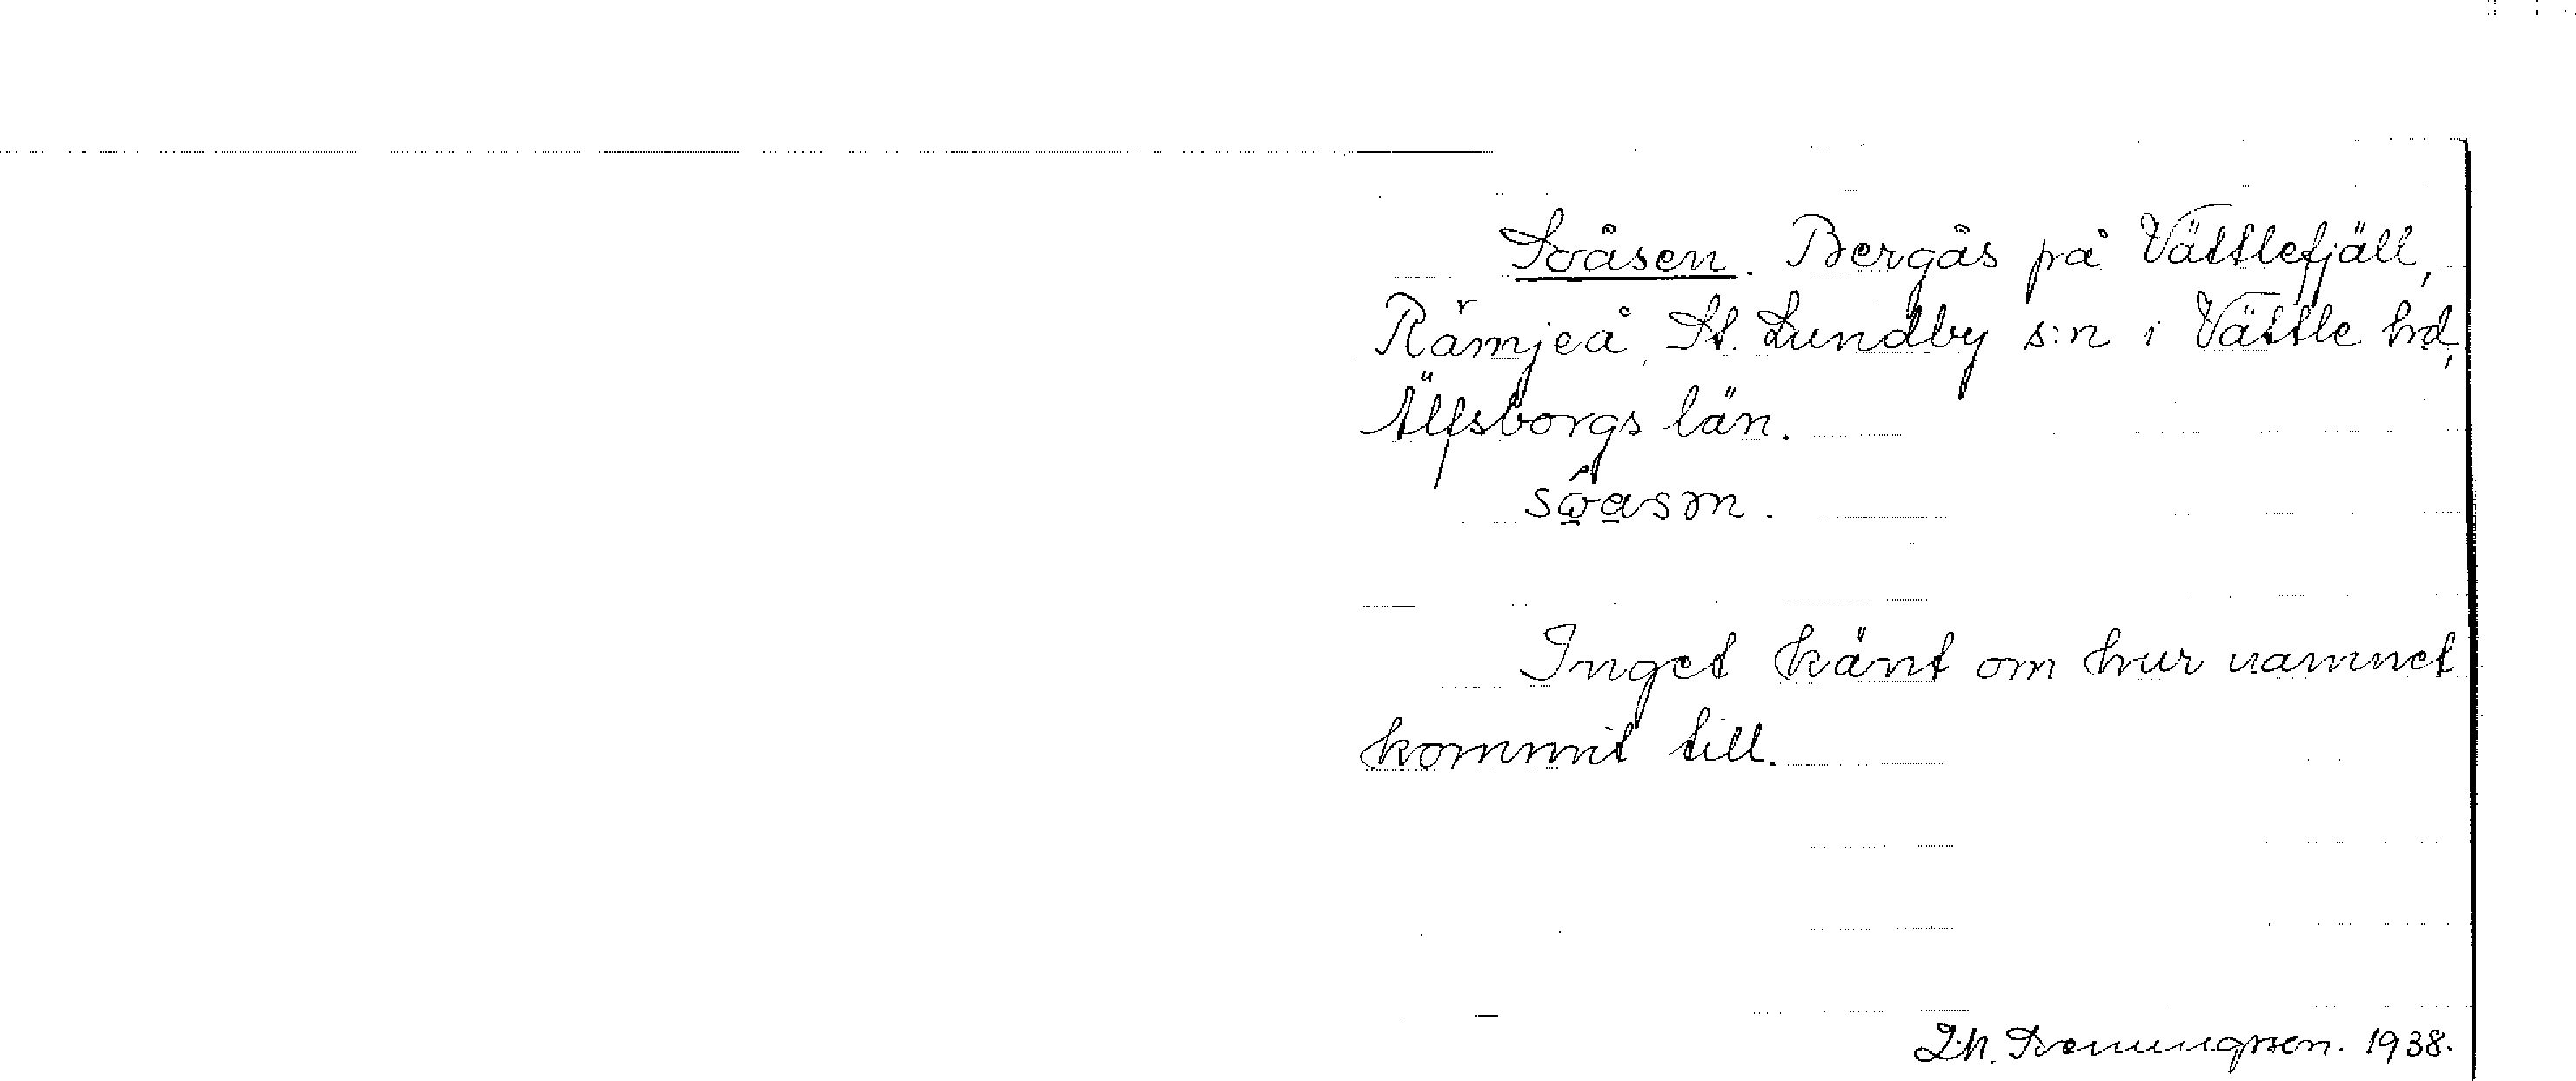 Soåsen. Bergås på Vättlefjäll,
Rämjeå, St. Lundby s:n i Vättle hd,
Älfsborgs län.
Inget känt om hur namnet
kommit till.
1938.